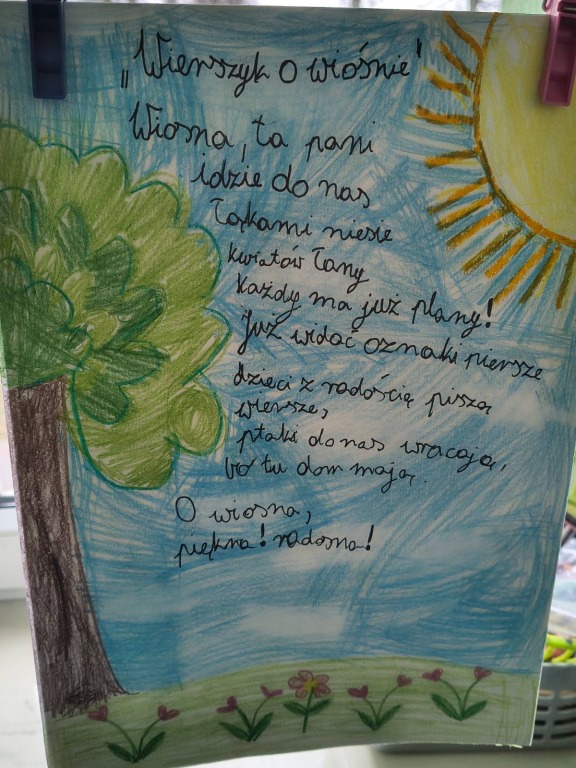 „Wierszyk o wiośnie"
Wiosna, ta pani
idzie do nas
Łąkami niesie
kwiatów łany
każdy ma już plany!
Już widać oznaki piersze
dzieci z radością piszą
wiersze,
ptaki do nas wracają,
bo tu dom mają.
O wiosna,
piękna! radosna!